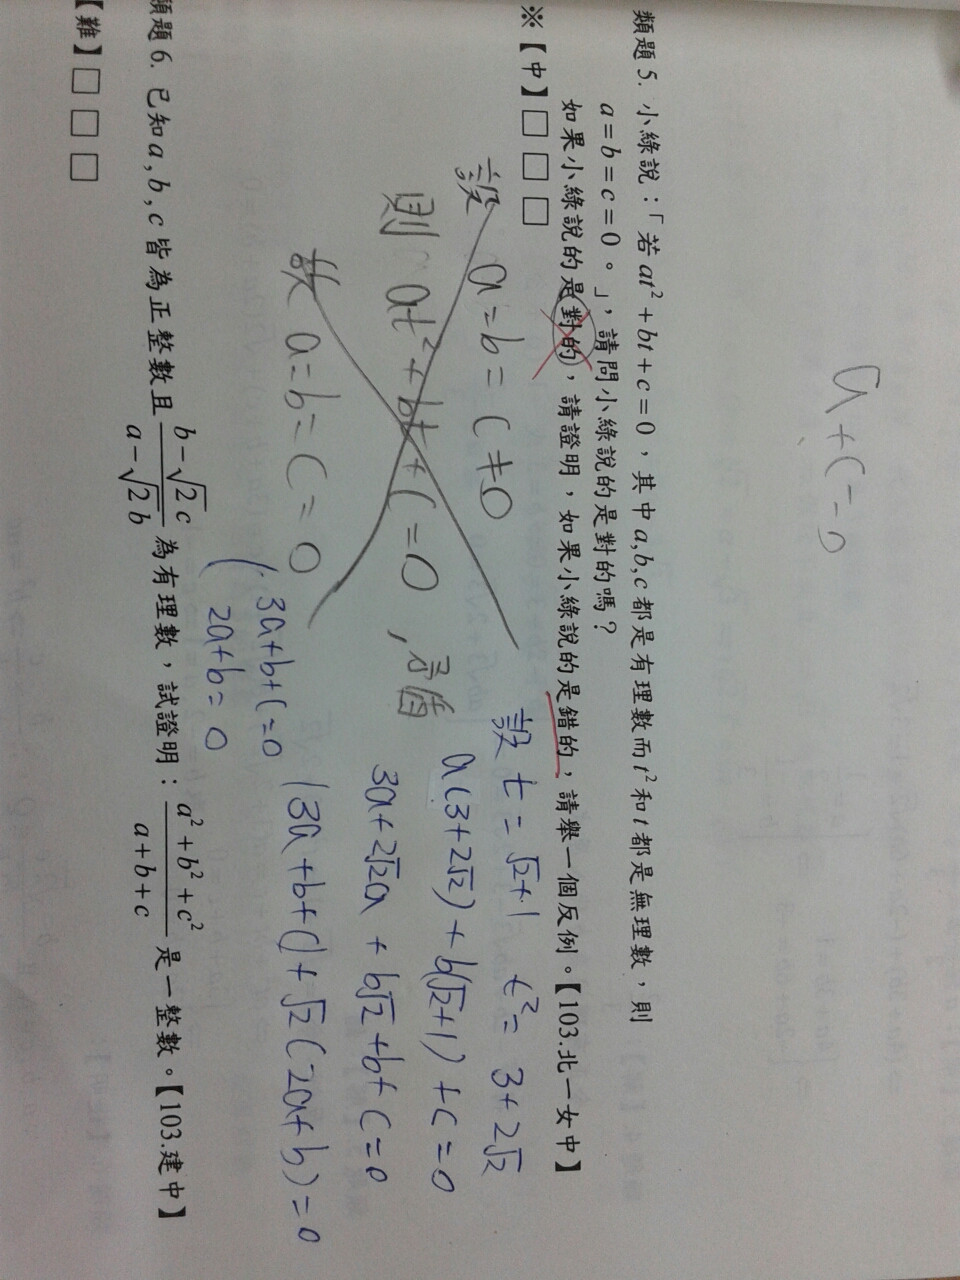 a+c=0
類題 5. 小綠說：「若 at²+bt+c=0，其中 a,b,c 都是有理數而 t² 和 t 都是無理數，則
a=b=c=0。」，請問小綠說的是對的嗎？
如果小綠說的是對的，請證明，如果小綠說的是錯的，請舉一個反例。【103.北一女中】
※【中】□ □ □
設 a=b=c≠0
則 at²+bt+c=0，矛盾
故 a=b=c=0
設 t=√2+1 t²=3+2√2
a(3+2√2)+b(√2+1)+c=0
3a+2√2a+b√2+b+c=0
(3a+b+c)+√2(2a+b)=0
3a+b+c=0
2a+b=0
類題 6. 已知 a,b,c 皆為正整數且 (b-√2c)/(a-√2b) 為有理數，試證明：(a²+b²+c²)/(a+b+c) 是一整數。【103.建中】
【難】□ □ □